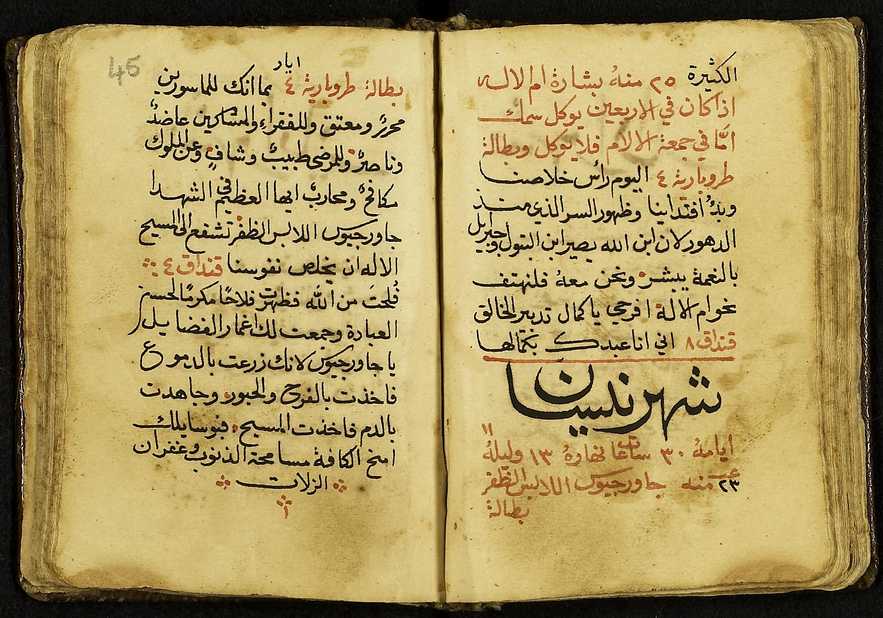 الكثيرة ٢٥ منهُ بشارة ام الاله
اذا كان في الاربعين يوكل سمك
امَّا في جمعة الالام فلا يوكل وبطالة
طروبارية ٤ اليوم راس خلاصنا
وبدُّ افتداينا وظهور السر الذي منذ
الدهور لان ابن الله يصير ابن البتول وجبرايل
بالنعمة يبشر ونحن معهُ فلنهتف
نحو ام الالة افرحي يا كمال تدبير الخالق
قنداق ٨ اني انا عبدك بكمالها
شهر نيسان
ايامهُ ٣٠ ساعات نهارهُ ١٣ وليلهُ ١١
٢٣ منه جاورجيوس اللابس الظفر
بطالة
46
بطالة طروبارية ٤ بما انك للماسورين
محررٌ ومعتق وللفقراء والمساكين عاضدٌ
وناصرٌ وللمرضى طبيبٌ وشافٍ وعن الملوك
مكافحٌ ومحاربٌ ايها العظيم في الشهدا
جاورجيوس اللابس الظفر تشفع الى المسيح
الاله ان يخلص نفوسنا قنداق ٤
فُلحتَ من الله فظهرت فلاحًا مكرمًا لحسن
العبادة وجمعت لك اغمار الفضايل
يا جاورجيوس لانك زرعت بالدموع
فاخذت بالفرح والحبور وجاهدت
بالدم فاخذت المسيح فبوسايلك
امنح الكافة مسامحة الذنوب وغفران
الزلات